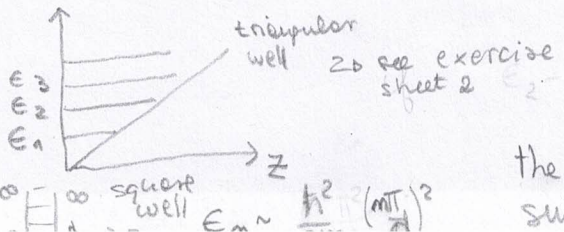 triangular
well → see exercise
sheet 2
ϵ₃
ϵ₂
ϵ₁
z
the
∞ ∞ square
well ϵₙ ~ ħ² (nπ/d)²